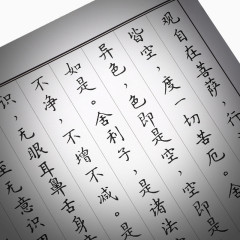 观自在菩萨,行
皆空,度一切苦厄。
异色,色即是空,空
如是。舍利子,是诸法
不净,不增不减。
识,无眼耳鼻舌身
至无意识